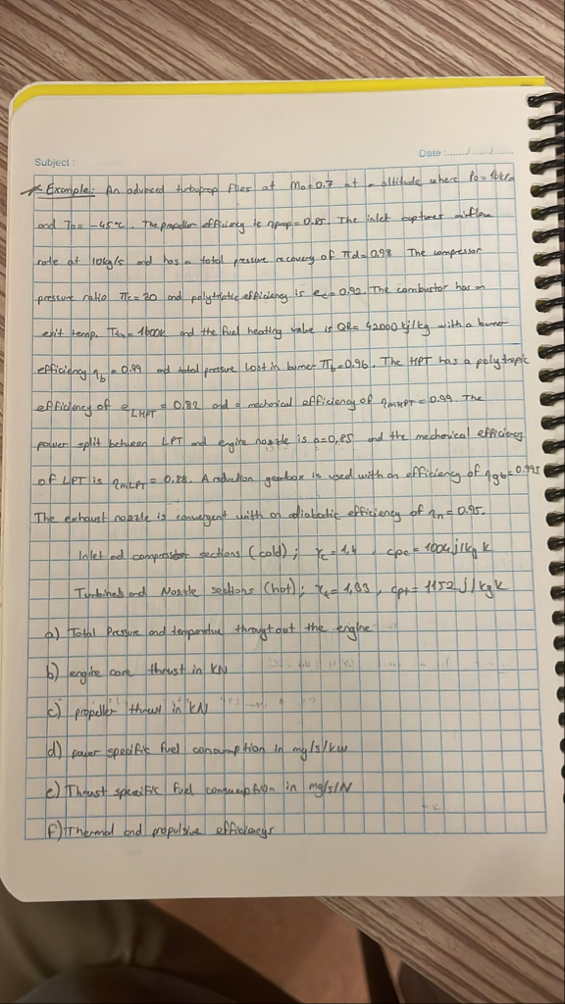 Subject :
Date :......./......./.......
Example: An advanced turboprop flies at Mo=0.7 at a altitude where Po=16kPa
and To= -45°C. The propeller efficiency is ηprop=0.85. The inlet captures airflow
rate at 10kg/s and has a total pressure recovery of πd=0.98 The compressor
pressure ratio πc=30 and polytropic efficiency is ec=0.92. The combustor has an
exit temp. Tt4=1600K and the fuel heating value is QR= 42000 kj/kg with a burner
efficiency ηb=0.99 and total pressure lost in burner πb=0.96. The HPT has a polytropic
efficiency of eLHPT=0.82 and a mechanical efficiency of ηmHPT=0.99. The
power split between LPT and engine nozzle is α=0,85 and the mechanical efficiency
of LPT is ηmLPT=0.88. A reduction gearbox is used with an efficiency of ηgb=0.995
The exhaust nozzle is convergent with an adiabatic efficiency of ηn=0.95.
Inlet and compressor sections (cold); γc=1,4 , cpc=1004j/kg K
Turbines and Nozzle sections (hot); γt=1,33 , cpt=1152j/kgK
a) Total Pressure and temperatue througtout the engine
b) engine core thrust in KN
c) propeller thrust in KN
d) power specific fuel consumption in mg/s/kw
e) Thrust specific fuel consumption in mg/s/N
f) Thermal and propulsive efficiencys